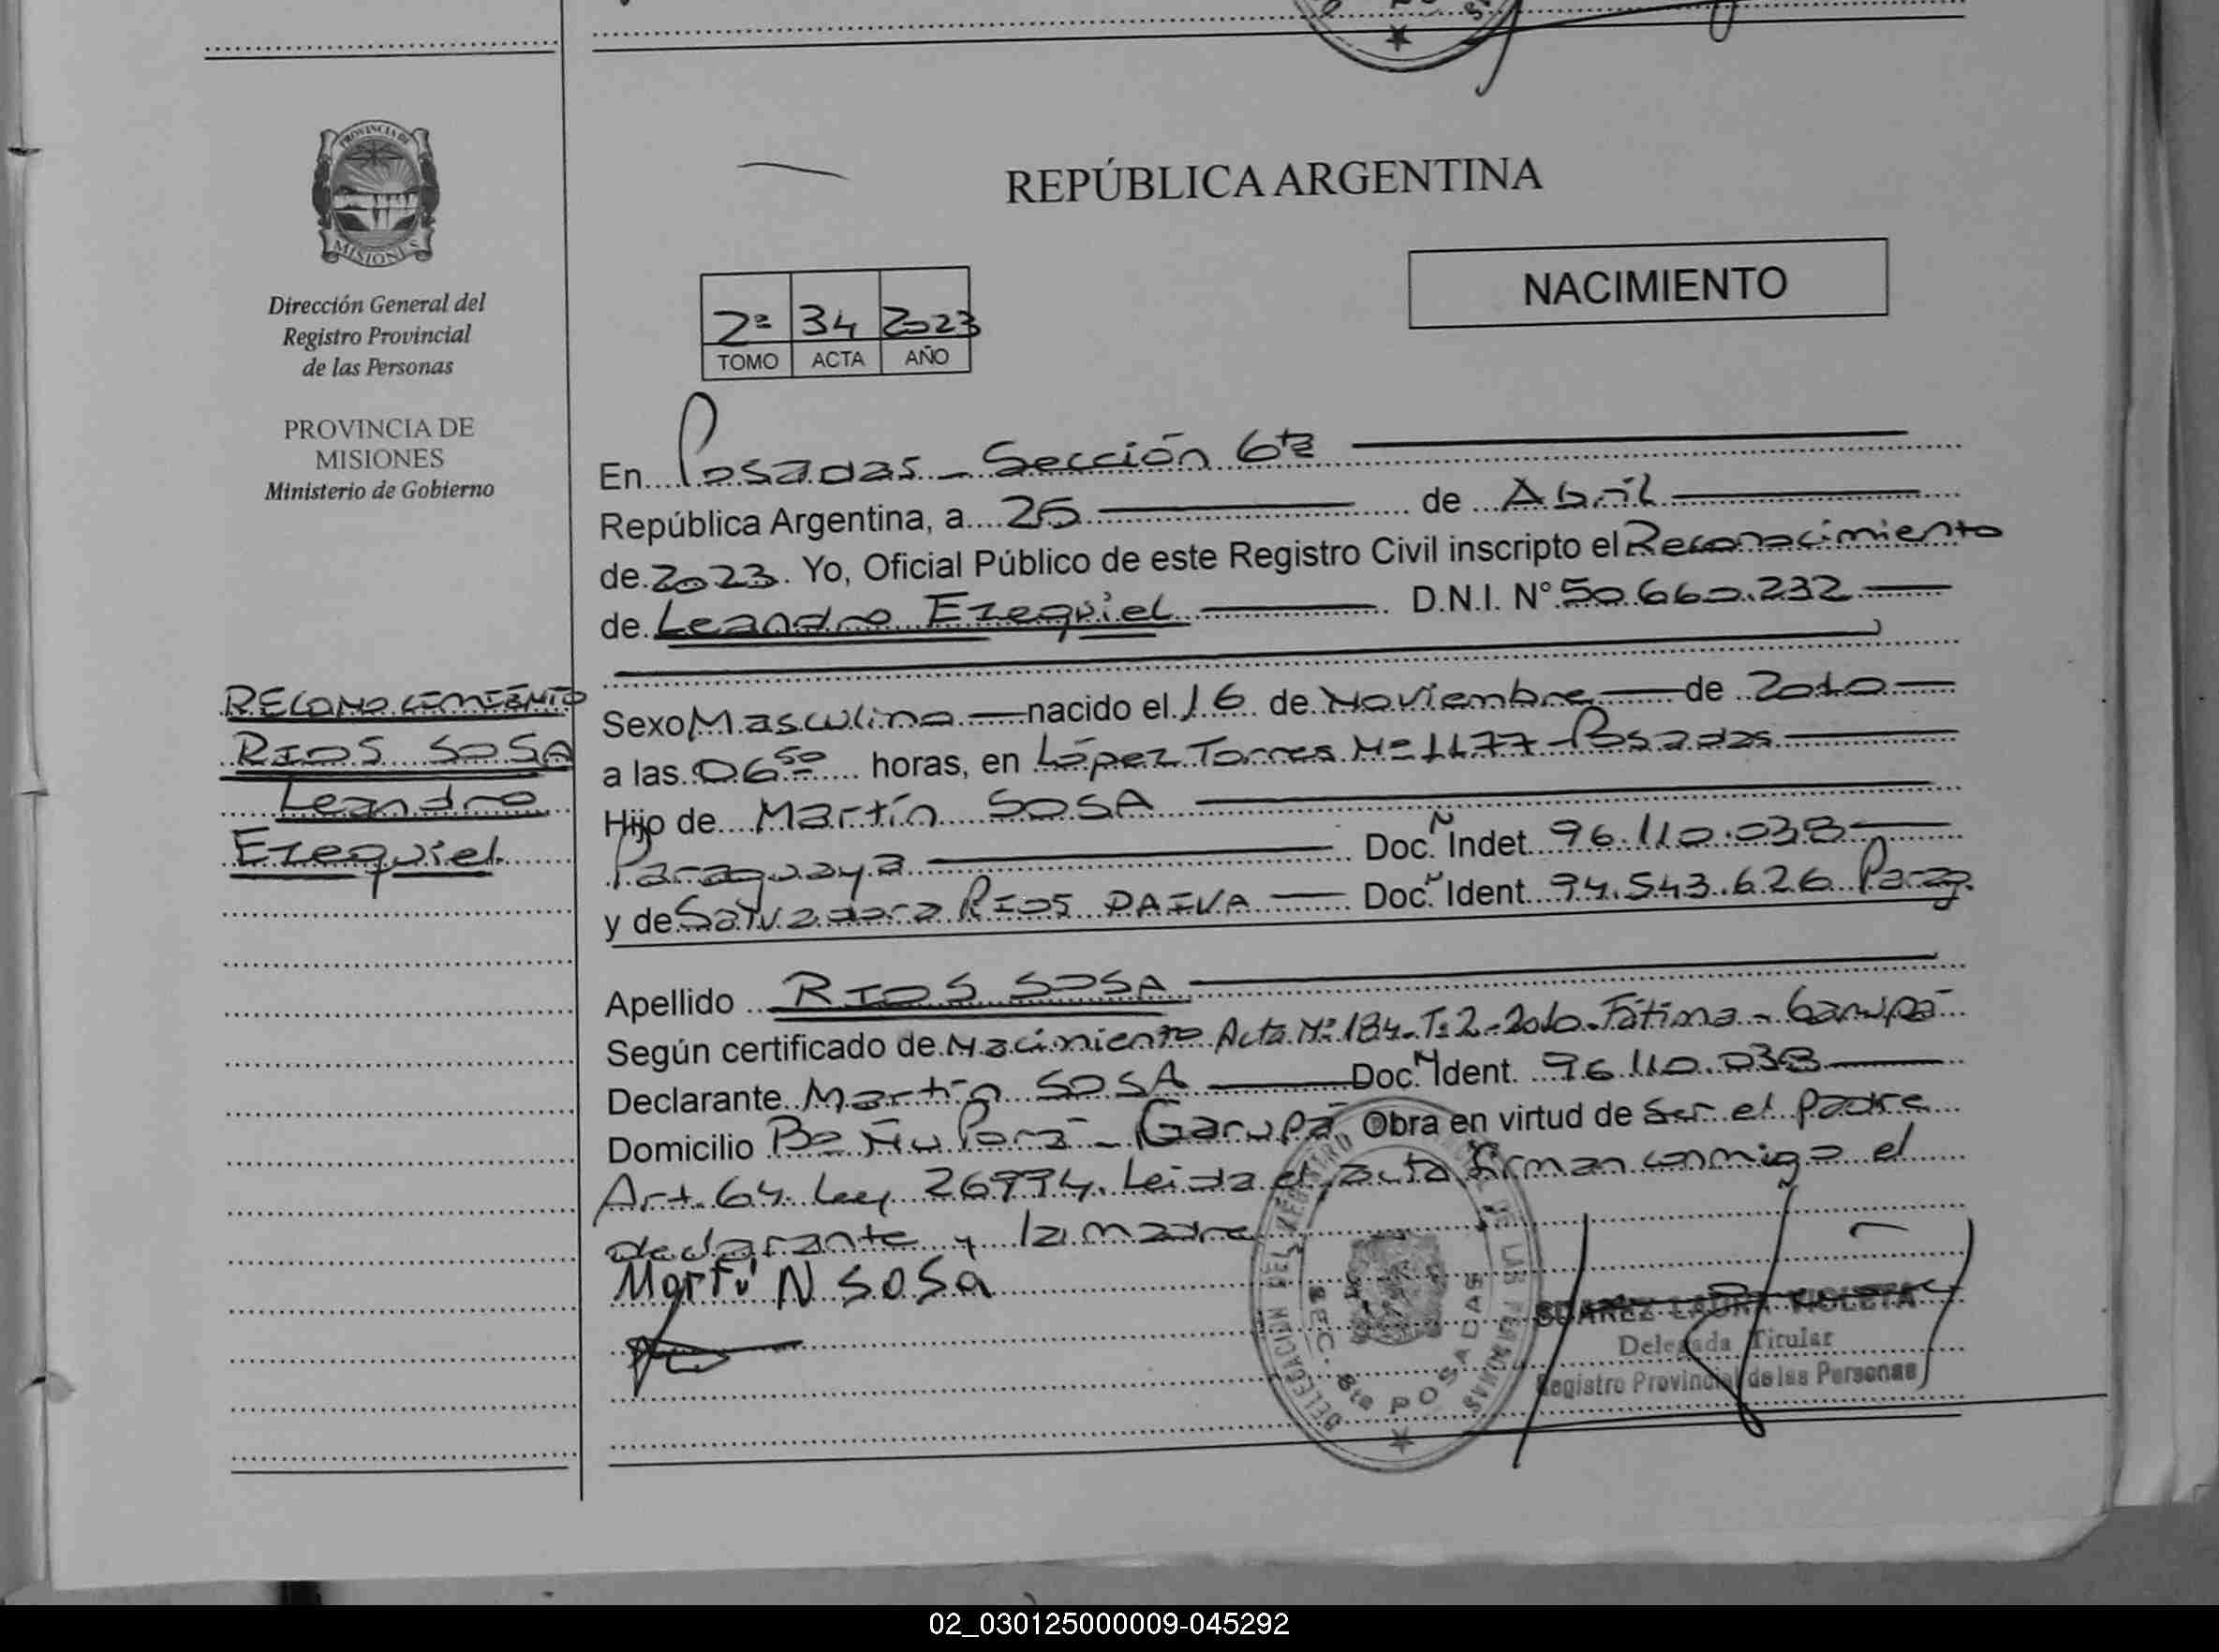 PROVINCIA DE
MISIONES
Dirección General del
Registro Provincial
de las Personas
PROVINCIA DE
MISIONES
Ministerio de Gobierno
RECONOCIMIENTO
RIOS SOSA
Leandro
Ezequiel
REPÚBLICA ARGENTINA
NACIMIENTO
2º 34 2023
TOMO ACTA AÑO
En Posadas - Sección 6ta
República Argentina, a 26 de Abril
de 2023. Yo, Oficial Público de este Registro Civil inscripto el Reconocimiento
de Leandro Ezequiel D.N.I. Nº 50.660.232
Sexo Masculino nacido el 16 de Noviembre de 2010
a las 06 50 horas, en López Torres Nº 1177 - Posadas
Hijo de Martín SOSA
Paraguaya Doc. N Indet. 96.110.038
y de Salvadora RIOS PAIVA Doc. N Ident. 94.543.626 Parag.
Apellido RIOS SOSA
Según certificado de Nacimiento Acta Nº 184 - Tº 2 - 2010 - Fátima - Garupá
Declarante Martín SOSA Doc. N Ident. 96.110.038
Domicilio Bº Ñu Porá - Garupá Obra en virtud de Ser el padre
Art. 64. Ley 26994. Leida el acta firman conmigo el
declarante y la madre
Martin N SOSa
DELEGACION DEL REGISTRO PROVINCIAL DE LAS PERSONAS
SEC. 6ta POSADAS
SUAREZ LAURA VIOLETA
Delegada Titular
Registro Provincial de las Personas
02_030125000009-045292